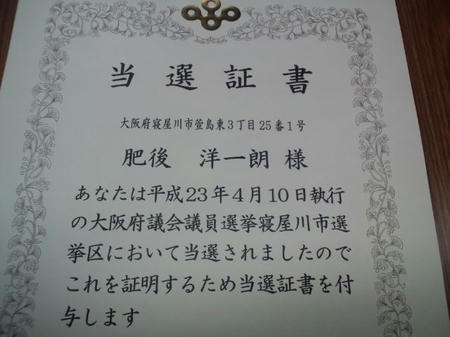 当選証書
大阪府寝屋川市萱島東3丁目25番1号
肥後 洋一朗 様
あなたは平成23年4月10日執行
の大阪府議会議員選挙寝屋川市選
挙区において当選されましたので
これを証明するため当選証書を付
与します